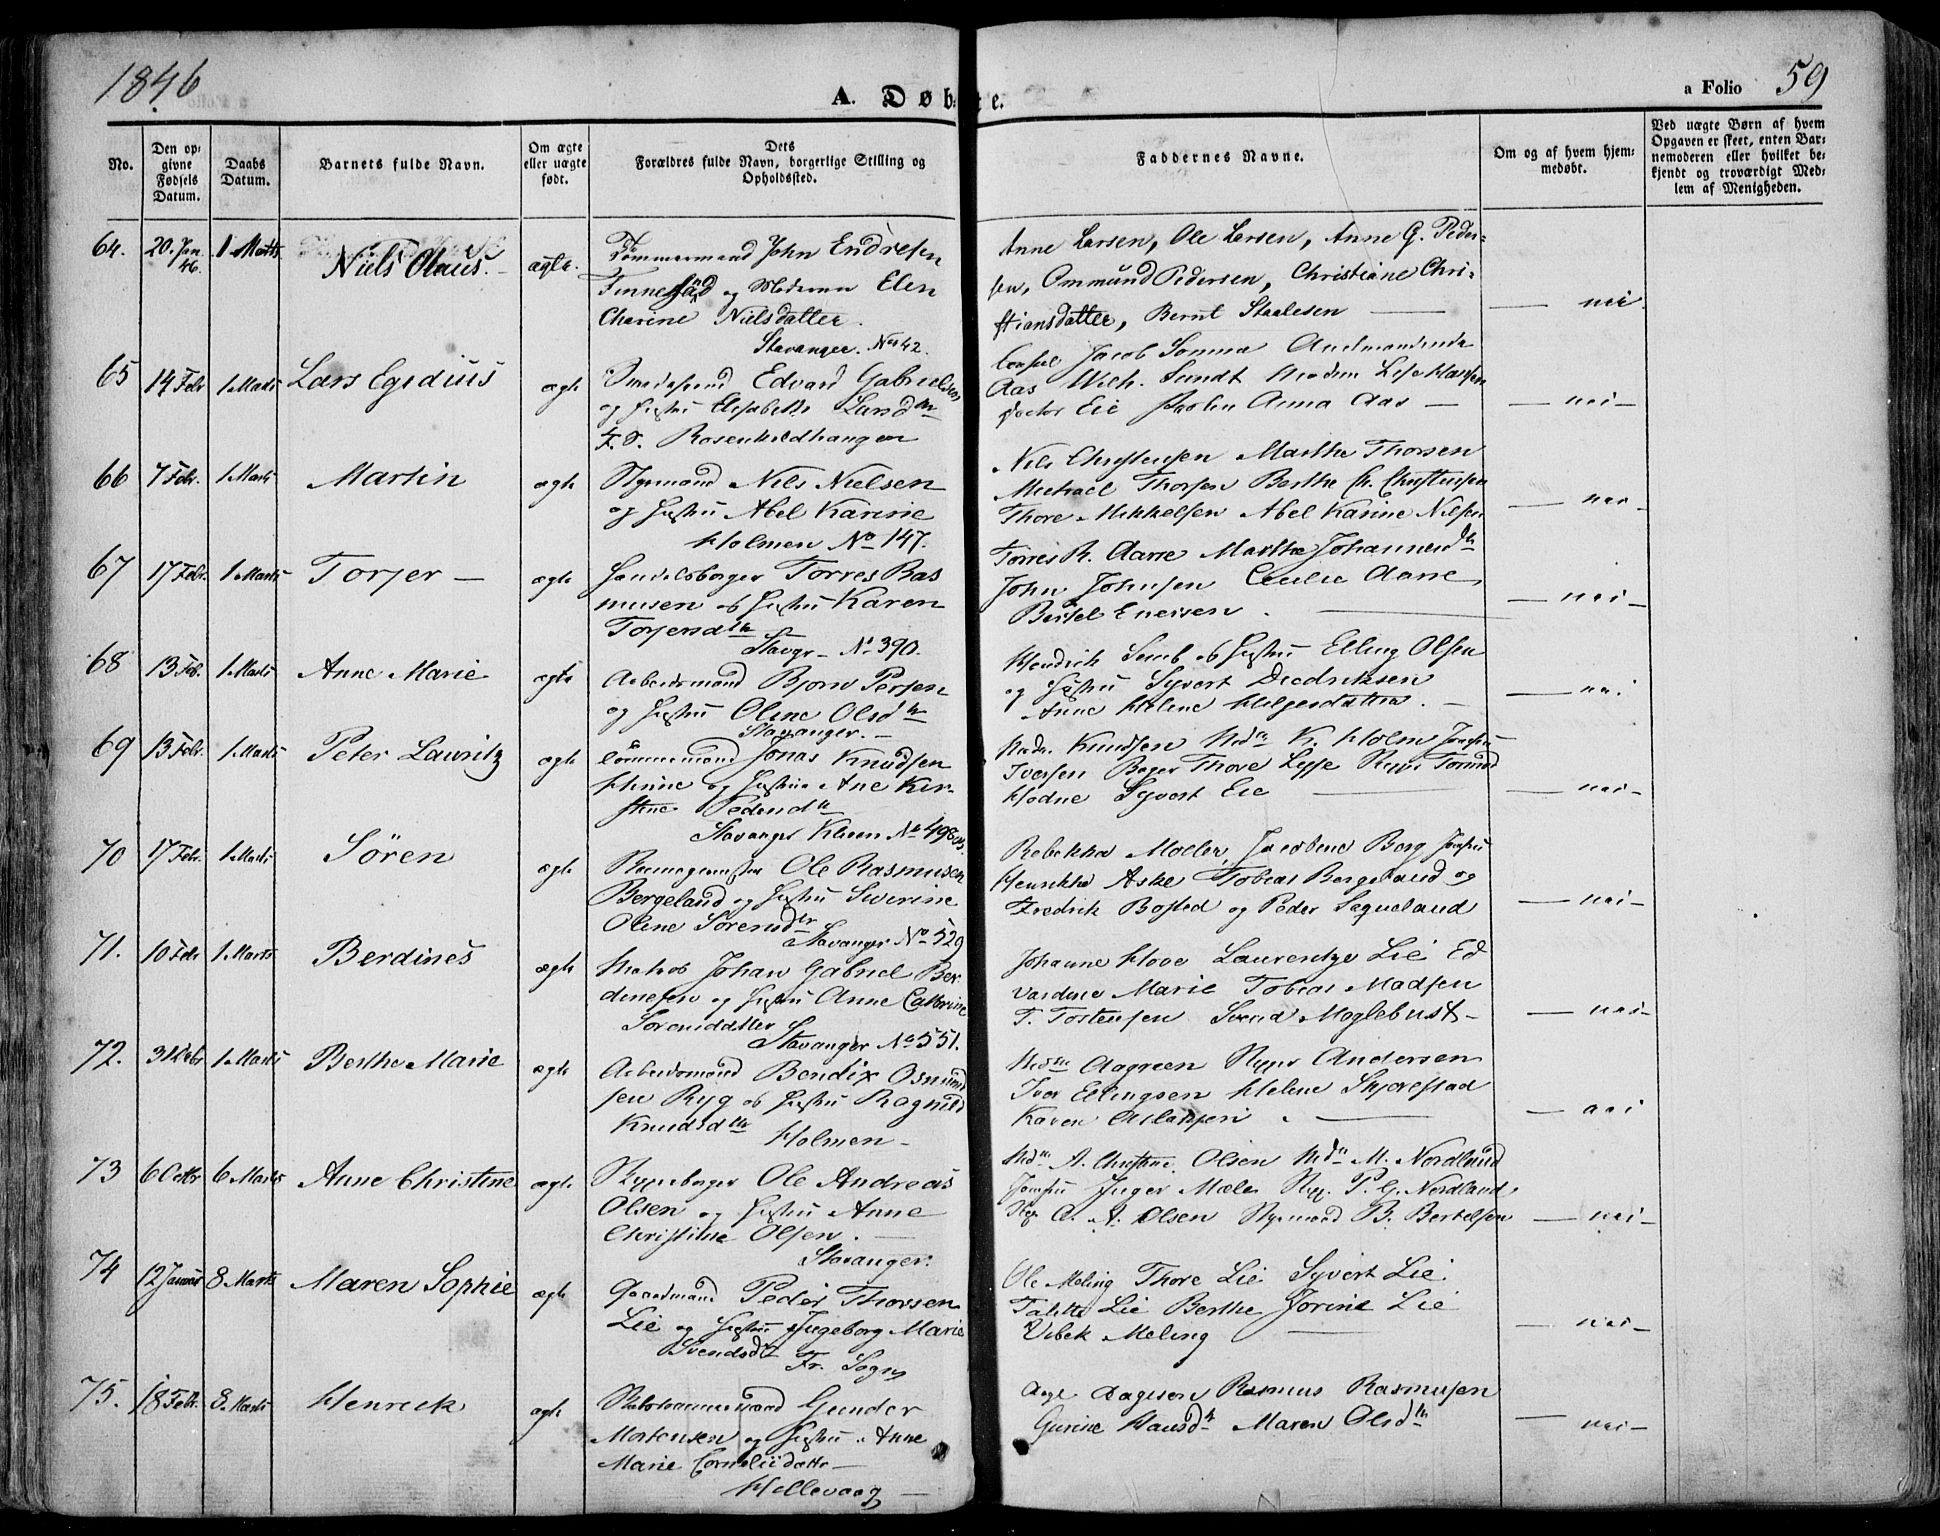 1846
A. Døbte.
a Folio 59
No.
Den opgivne Fødsels Datum.
Daabs Datum.
Barnets fulde Navn.
Om ægte eller uægte født.
Dets Forældres fulde Navn, borgerlige Stilling og Opholdssted.
Faddernes Navne.
Om og af hvem hjemmedøbt.
Ved uægte Børn af hvem Opgaven er skeet, enten Barnemoderen eller hvilket bekjendt og troværdigt Medlem af Menigheden.
64. 20. Jan 46. 1 Marts Niels Olaus. ægte.
Tømmermand John Endresen
og Madame Elen
Nielsdatter.
Stavanger. No 42.
Anne Larsen, Ole Larsen, Anne G. Peder-
sen, Ommund Pedersen, Christiane Chri-
stiansdatter, Bernt Staalesen
nei.
65 14 Febr 1 Marts Lars Egidius ægte
Edvard Gabrielsen
og Hustru Elisabeth Lund
F. S.
Jacob Somme
Aas Wilh. Sundt
Doctor Eie Anna Aas
nei
66 7 Febr. 1 Marts Martin ægte
Styrmand Nils Nielsen
og Hustru Abel Karine
Holmen No 147.
Nils Christensen Marthe Thorsen
Michael Thorsen Berthe Christensen
Thore Mikkelsen Abel Karine Nilsen
nei
67 17 Febr. 1 Marts Torjer ægte
Handelsborger Torres Ras
musen og Hustru Karen
Torjersdtr
Stavgr No 390.
Torres R. Aarre Marthe Johannesdtr
John Johnsen Cecilie Aarre
Bertel Enersen.
nei
68 13 Feb. 1 Marts Anne Marie ægte
Arbeidsmand Bjorn Persen
og Hustru Olene Olsdtr
Stavanger.
Hendrik og Hustru Elling Olsen
og Hustru Syvert Diedriksen
Anne Helene Helgesdatter.
nei
69 13 Febr. 1 Marts Peter Lauritz ægte
Tömmermand Jonas Knudsen
og Hustru Ane Kir-
stine Pedersdtr
Stavanger
Knudsen K. Holm Jomfru
Iversen Thore
Hodne Syvert Eie
nei
70 17 Febr. 1 Marts Sören ægte
Ole Rasmusen
Bergeland og Hustru Severine
Oline Sörensdtr
Stavanger No 529
Rebekka Moller, Jacobene Berg Jomfru
Henrikke Aske Tobias Bergeland og
Fredrik Bosted og Peder
nei
71. 10 Febr 1 Marts Berdines ægte
Matros Johan Gabriel Ber
dinesen og Hustru Anne Cathrine
Sorensdatter
Stavanger No 551.
Johanne Hove Laurentze Lie Ed
vardine Marie Tobias Madsen
T. Tostensen Svend Moglebust
nei
72. 1 Marts Berthe Marie ægte
Arbeidsmand Bendix Osmund
sen Ryg og Hustru Ragnild
Knudsdtr
Holmen
Aagreen Andersen
Iver Ellingsen Helene
Karen Aslaksen
nei
73 6 Octbr 6 Marts Anne Christine ægte
Ole Andreas
Olsen og Hustru Anne
Christine Olsen.
Stavanger.
A. Christine Olsen M. Nordland
Jomfru Inger Mæle P. G. Nordland
O. A. Olsen Styrmand B. Bertelsen
nei
74 12 Januar 8 Marts Maren Sophie ægte
Gaardmand Peder Thorsen
Lie og Hustru Ingeborg Marie
Svendsd
Fr. Sogn
Ole Meling Thore Lie Syvert Lie
Talette Lie Berthe Jorine Lie
Vibek Meling
nei
75. 18 Febr. 8 Marts Henreck ægte
Gunder
Mortensen og Hustru Anne
Marie
Hellevaag
Aage Aagesen Rasmus Rasmusen
Gurine Hansdtr Maren Olsdtr
nei